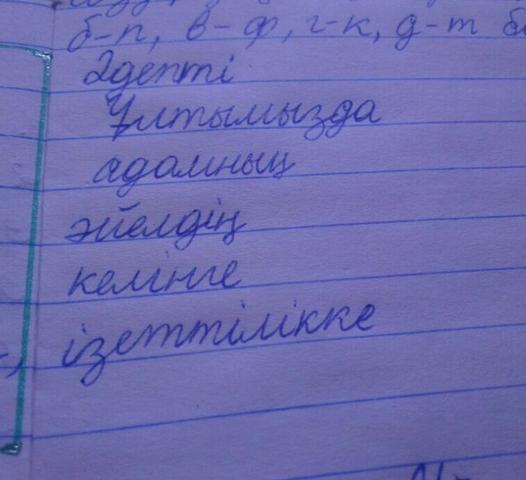 б-п, в-ф, г-к, д-т
Әдепті
Ұлтымызда
адамның
әйелдің
келінге
ізеттілікке